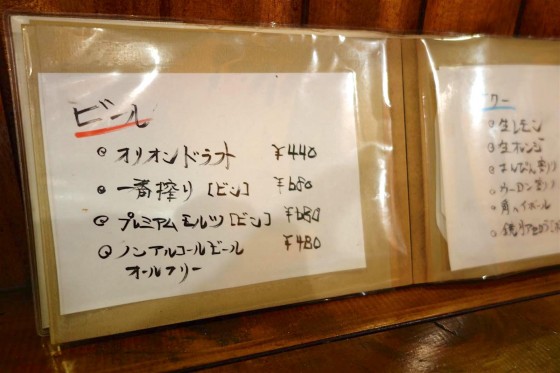 ビール
オリオンドラフト ¥440
一番搾り[ビン] ¥680
プレミアムモルツ[ビン] ¥680
ノンアルコールビール ¥480
オールフリー
ワー
生レモン
生オレンジ
ウーロン割り
角ハイボール